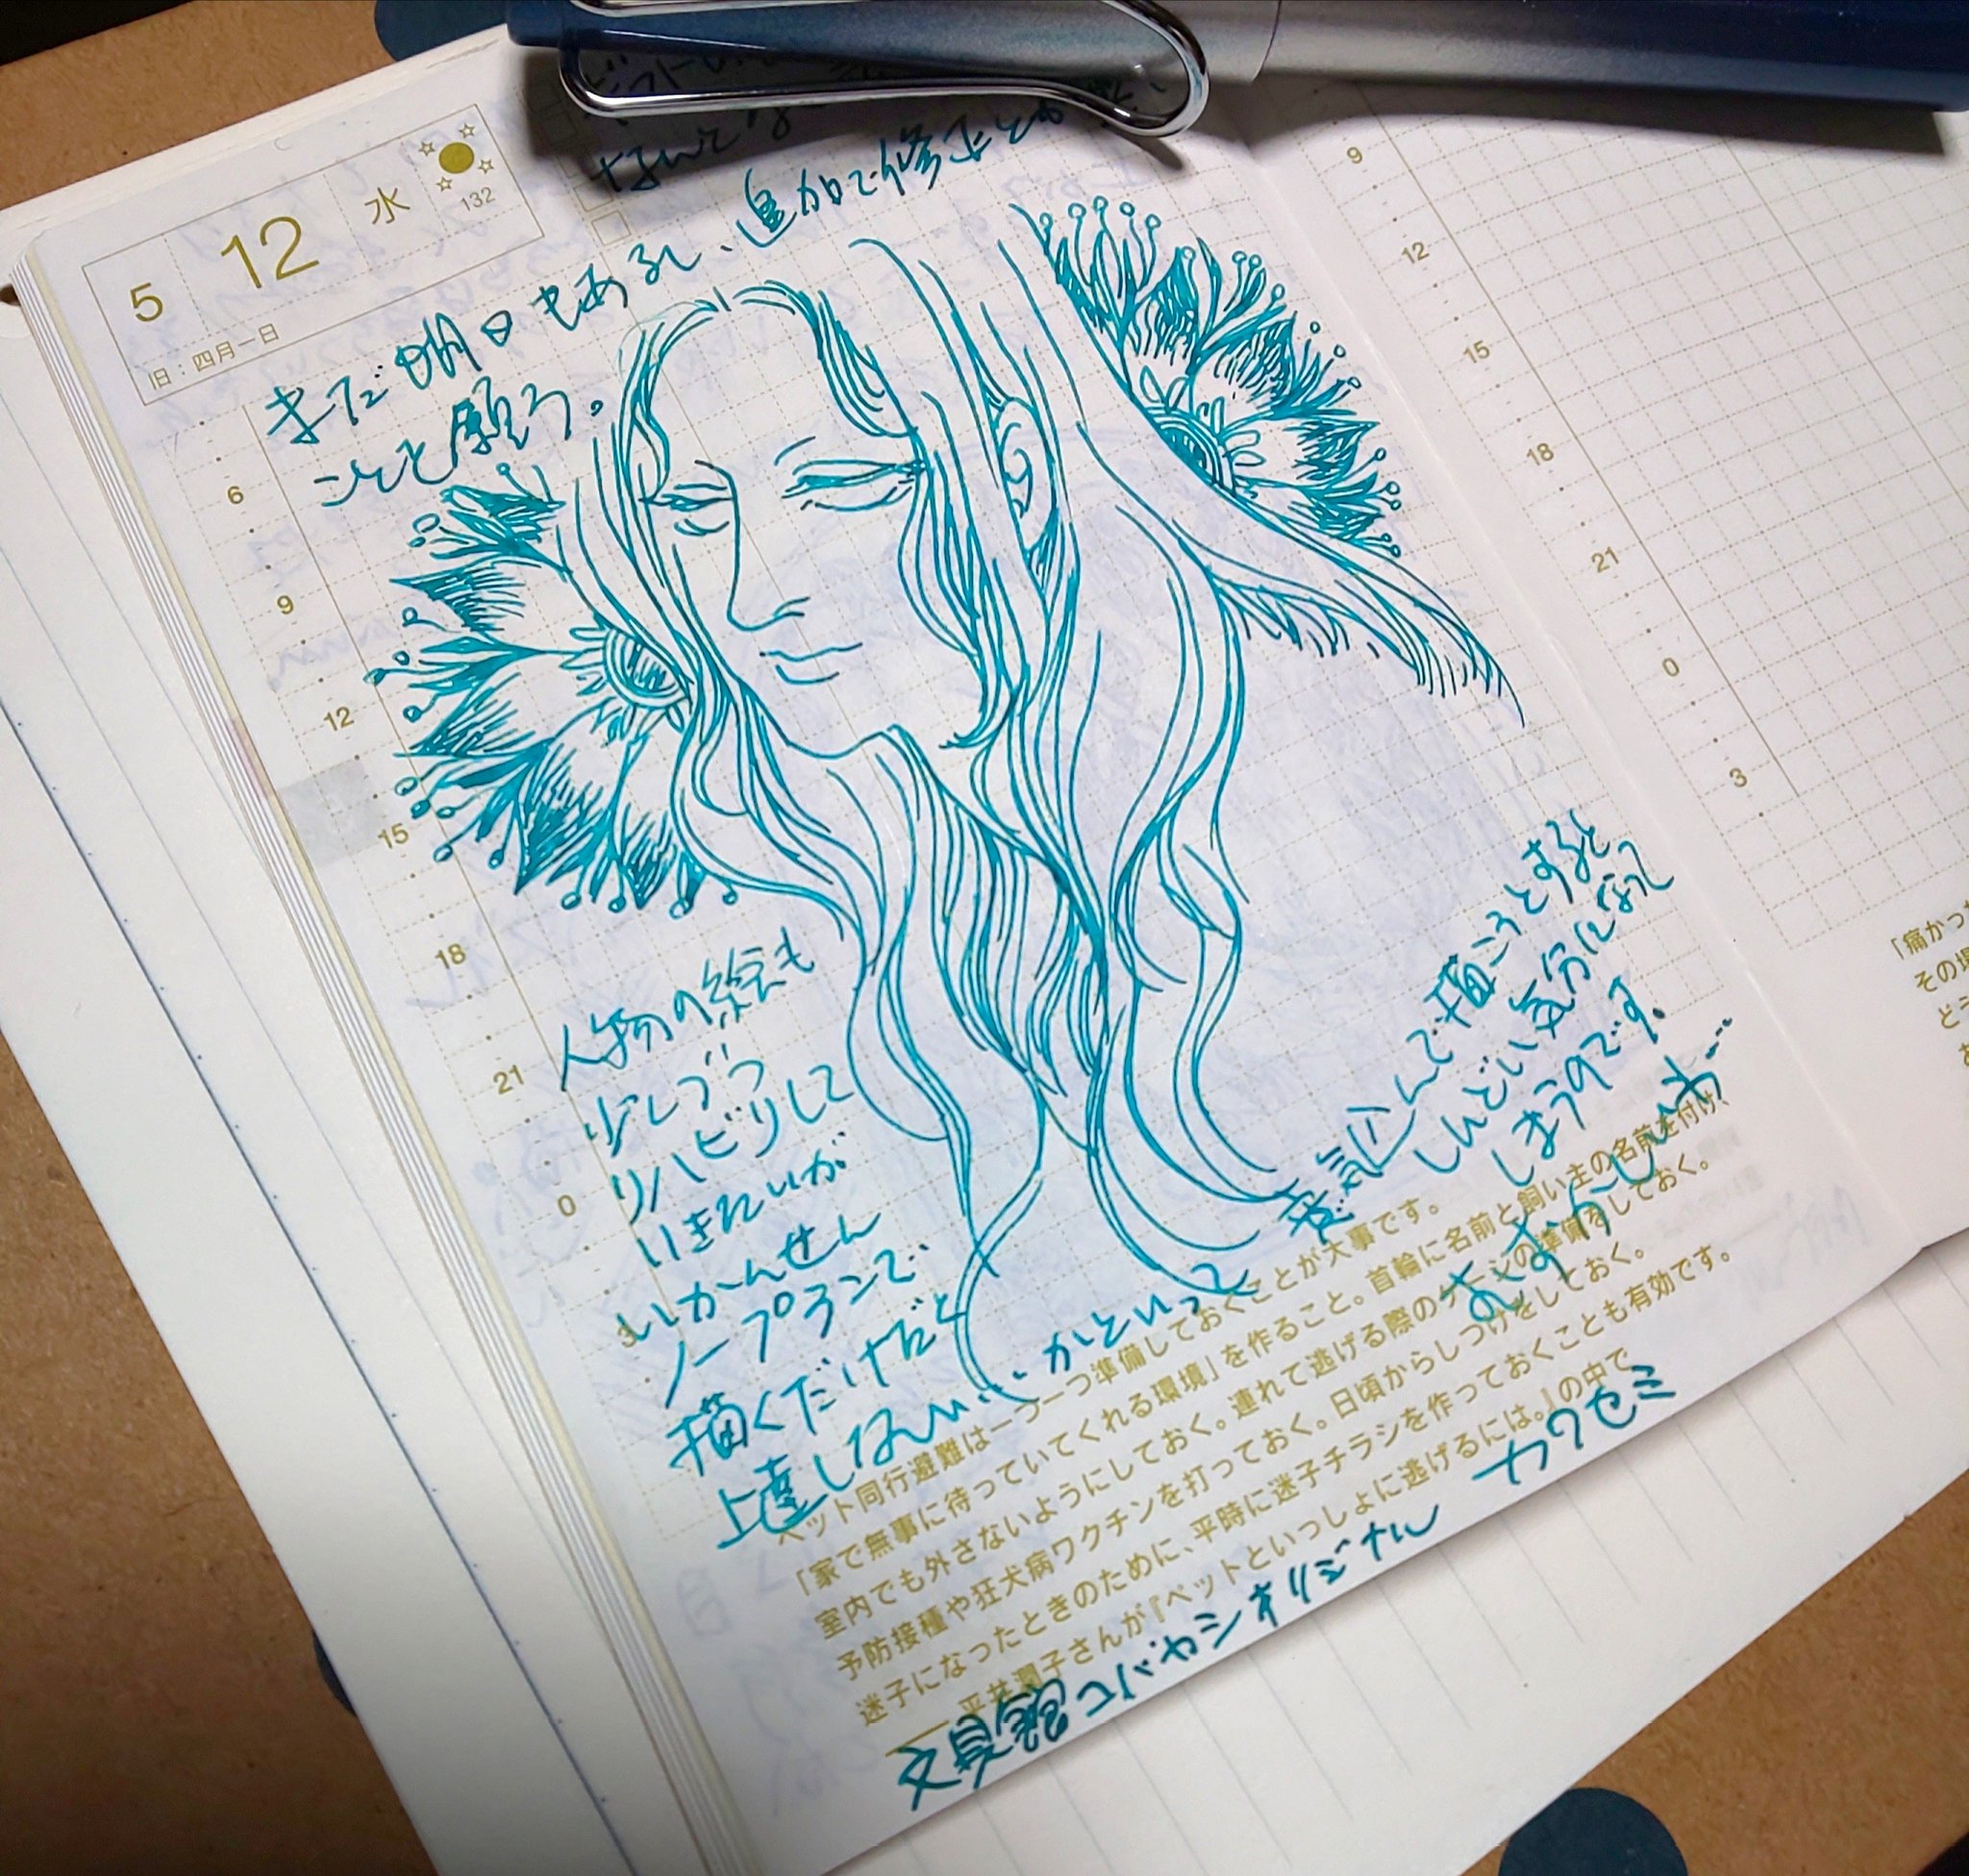 5 12 水
132
旧：四月一日
まだ明日もあるし、追加で修正とか
ことを願う。
6
9
12
15
18
21
0
3
人物の絵も
少しづつ
リハビリして
いきたいが
いかんせん
ノープランで
描くだけだと
上達しない…かといって
意気込んで描こうとすると
しんどい気分になって
しまうのです。
むずかしいね…
ペット同行避難は一つ一つ準備しておくことが大事です。
「家で無事に待っていてくれる環境」を作ること。首輪に名前と飼い主の名前を付け、
室内でも外さないようにしておく。連れて逃げる際のケージの準備をしておく。
予防接種や狂犬病ワクチンを打っておく。日頃からしつけをしておく。
迷子になったときのために、平時に迷子チラシを作っておくことも有効です。
平井潤子さんが『ペットといっしょに逃げるには。』の中で
文具館コバヤシオリジナル カワセミ
9
12
15
18
21
0
3
「痛かった
その場
どう